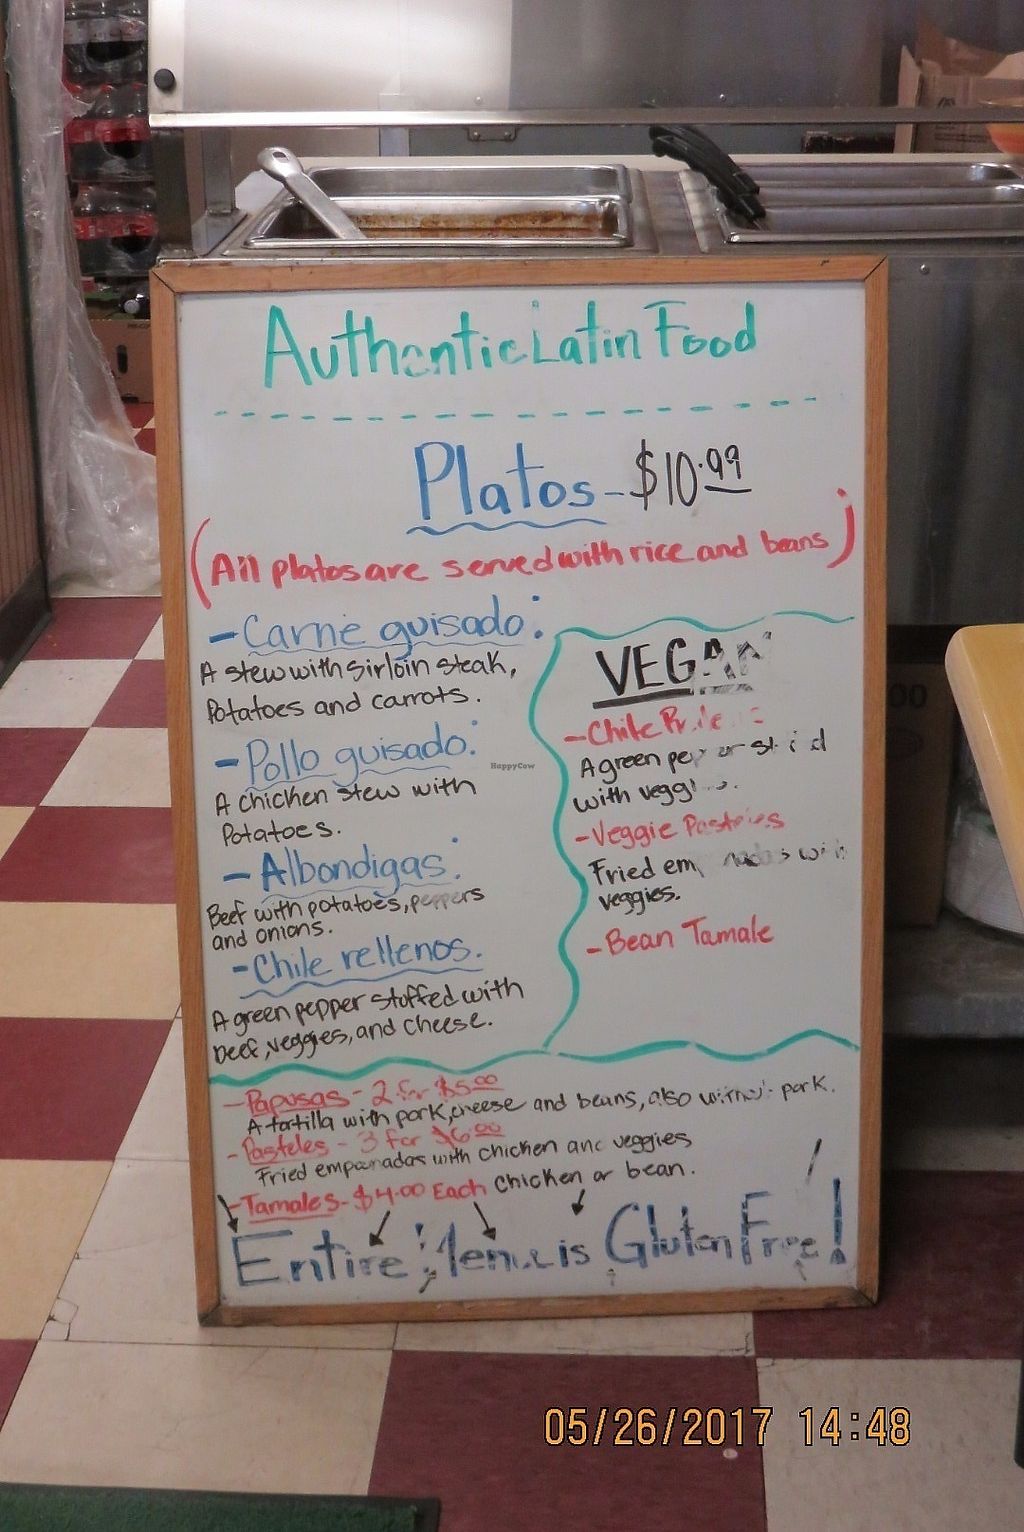 Authentic Latin Food
Platos - $10.99
(All platos are served with rice and beans)
- Carne guisado:
A stew with sirloin steak,
Potatoes and carrots.
- Pollo guisado:
A chicken stew with
Potatoes.
- Albondigas:
Beef with potatoes, peppers
and onions.
- Chile rellenos.
A green pepper stoffed with
beef, veggies, and cheese.
VEGAN
- Chile
A green pepper
with veggies.
- Veggie Pasteles
Fried empanadas with
veggies.
- Bean Tamale
- Papusas - 2 for $5.00
A tortilla with pork, cheese and beans, also without pork.
- Pasteles - 3 for $6.00
Fried empanadas with chicken and veggies
- Tamales - $4.00 Each chicken or bean.
Entire Menu is Gluten Free!
HappyCow
05/26/2017 14:48